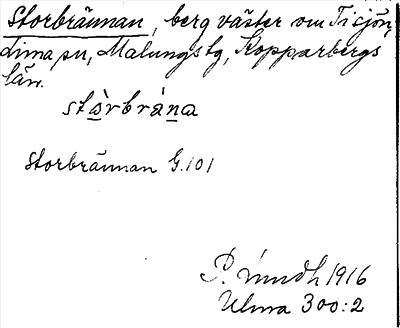 Storbrännan, berg väster om Tisjön,
Lima sn, Malungs tg, Kopparbergs
län.
stòrbràna
Storbrännan G.101
P. 1916
Ulma 300:2